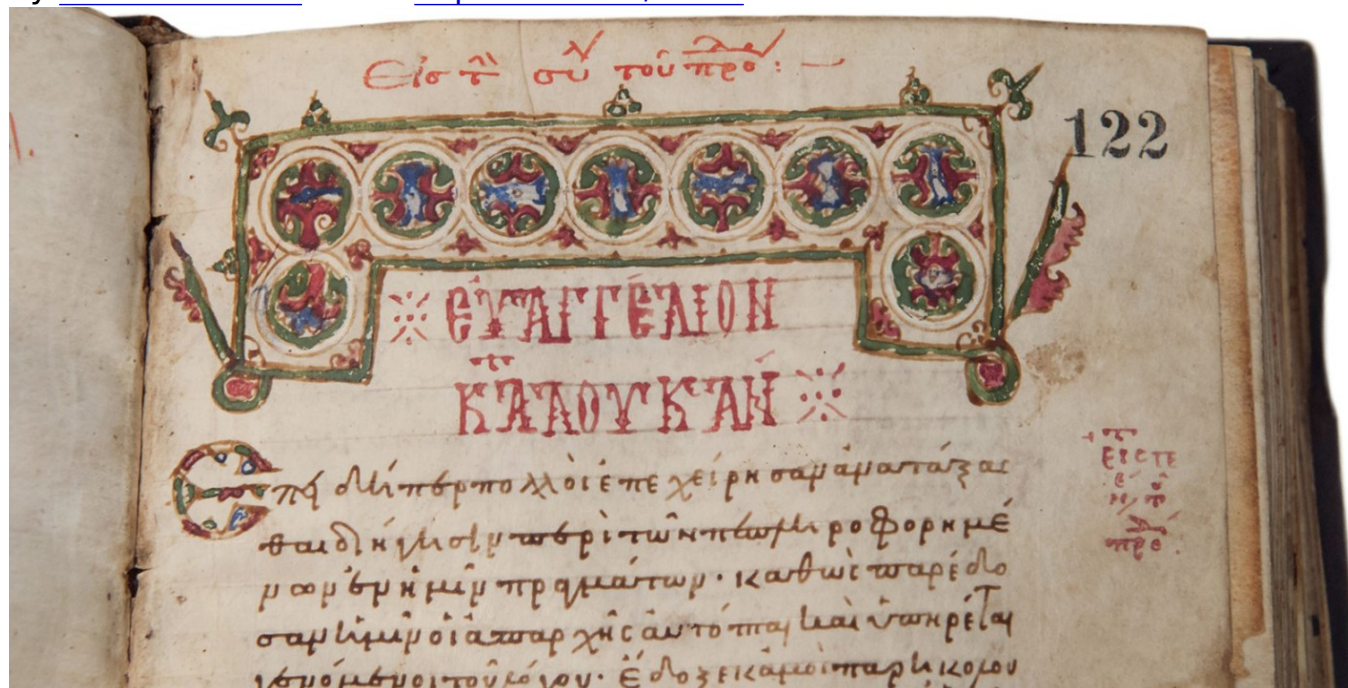 Εἰς τ συ τοῦ προ : —
122
ΕΥ̓ΑΓΓΈΛΙΟΝ
ΚΑΤΑ ΛΟΥΚΑ͂Ν
Ἐπειδήπερ πολλοὶ ἐπεχείρησαν ἀνατάξασ
θαι διήγησιν περὶ τῶν πεπληροφορημέ
νων ἐν ἡμῖν πραγμάτων · καθὼς παρέδο
σαν ἡμῖν οἱ ἀπαρχῆς αὐτόπται καὶ ὑπηρέται
γενόμενοι τοῦ λόγου · ἔδοξε κἀμοὶ παρηκολου